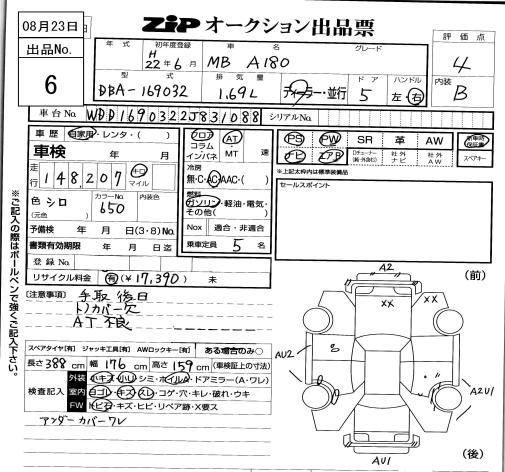 08月23日
ZiP オークション出品票
出品No.
6
年式 初年度登録 車名 グレード
H 22年6月 MB A180
評価点
4
型式 排気量 ドア ハンドル
DBA-169032 1.69L ディーラー・並行 5 左・右
内装
B
車台No. WDD1690322J831088 シリアルNo.
車歴 自家用・レンタ・( )
車検 年 月
走行 148,207 キロ マイル
色 シロ カラーNo. 650 内装色
(元色)
予備検 年 月 日(3・8)No.
書類有効期限 年 月 日迄
登録No.
リサイクル料金 有(¥17,390) 未
フロア コラム インパネ
AT・MT 速
冷房
無・C・AC・AAC・( )
燃料
ガソリン・軽油・電気・その他( )
Nox 適合・非適合
乗車定員 5 名
PS PW SR 革 AW
ナビ エアB 社外ナビ 社外AW
スペアキー
*上記太枠内は標準装備品
セールスポイント
※ご記入の際はボールペンで強くご記入下さい。
(注意事項) 手取 後日
トノカバー欠
AT 不良
スペアタイヤ[有] ジャッキ工具[有] AWロックキー[有] ある場合のみ○
長さ 388 cm 幅 176 cm 高さ 159 cm (車検証上の寸法)
検査記入
外装 小キズ・小U・シミ・ホイルA・ドアミラー(A・ワレ)
室内 ヨゴレ・キズ・スレ・コゲ・穴・キレ・破れ・ウキ
FW トビ石・キズ・ヒビ・リペア跡・X要ス
アンダーカバーワレ
(前)
A2
XX
XX
AU2
A2U1
AU1
(後)